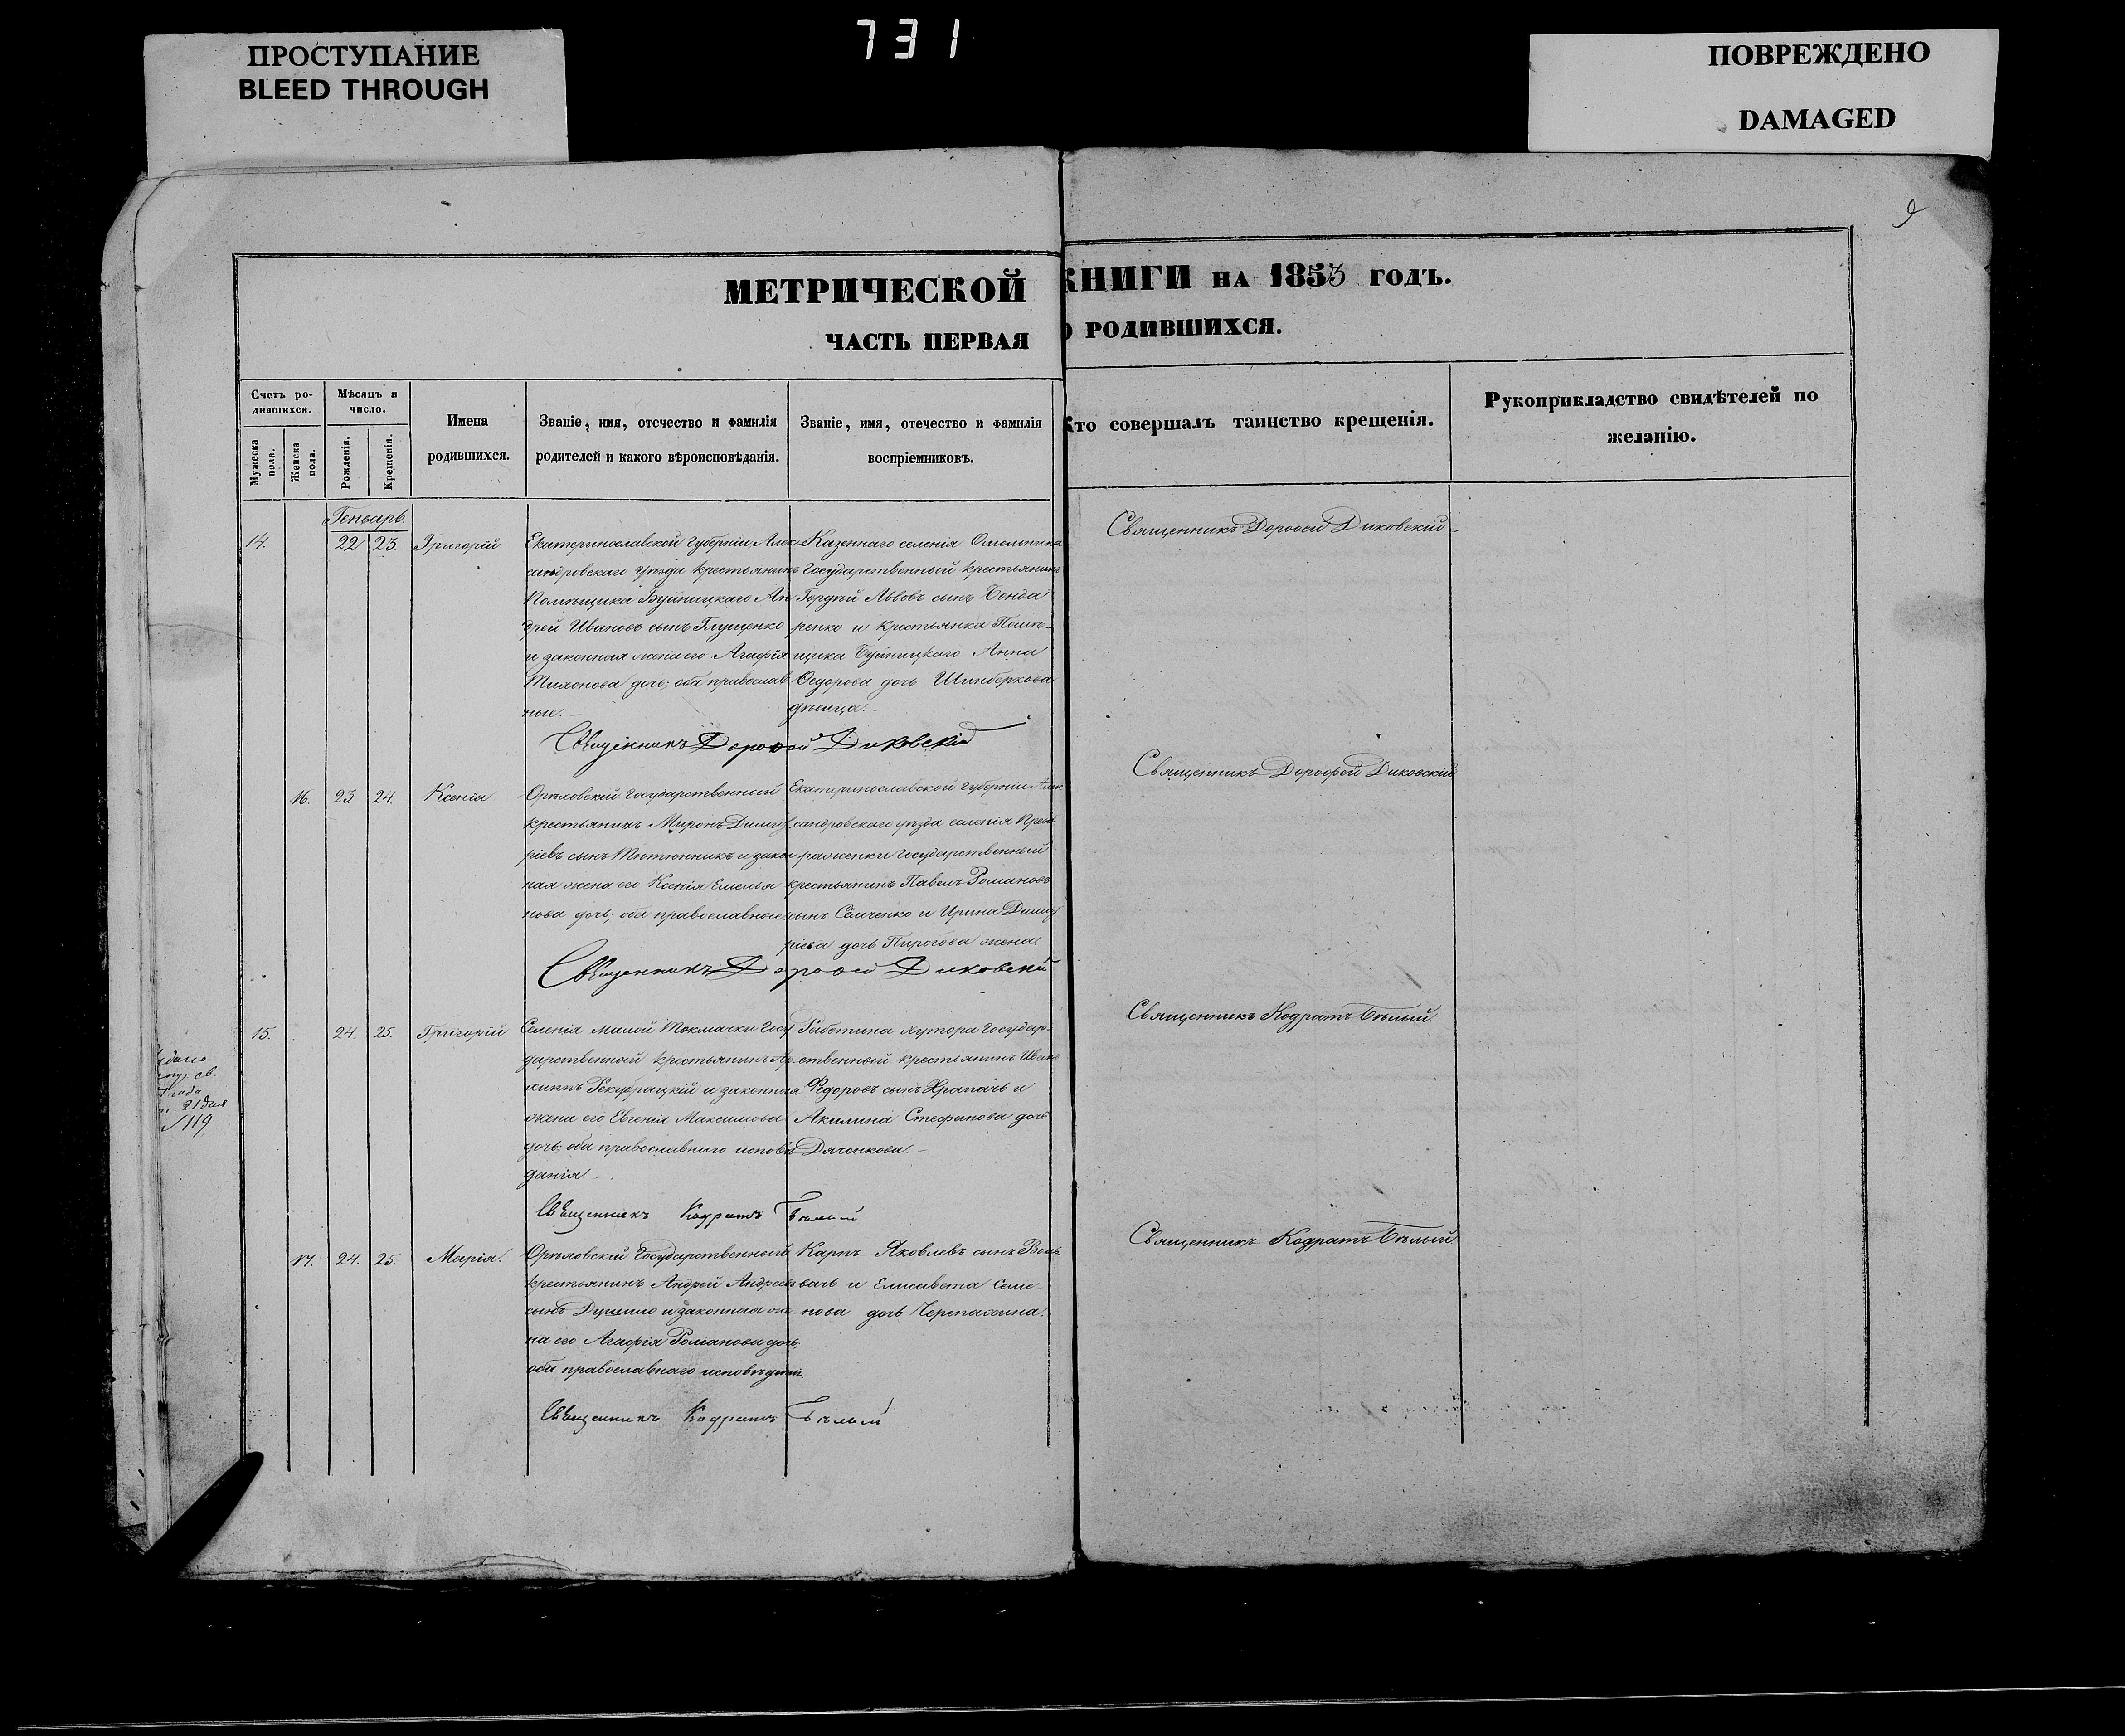 ПРОСТУПАНИЕ
BLEED THROUGH
731
ПОВРЕЖДЕНО
DAMAGED
9
МЕТРИЧЕСКОЙ КНИГИ НА 1853 ГОДЪ.
ЧАСТЬ ПЕРВАЯ О РОДИВШИХСЯ.
Счетъ ро-
дившихся.
Мужеска пола.
Женска пола.
Мѣсяцъ и
число.
Рожденія.
Крещенія.
Имена
родившихся.
Званіе, имя, отечество и фамилія
родителей и какого вѣроисповѣданія.
Званіе, имя, отечество и фамилія
воспріемниковъ.
Кто совершалъ таинство крещенія.
Рукоприкладство свидѣтелей по
желанію.
Генварь.
14. 22 23. Григорій
Екатеринославской Губерніи, Алек
сандровскаго уѣзда крестьянинъ
Помѣщика Буйницкаго Ан
дрей Ивановъ сынъ Глущенко
и законная жена его Агафія
Тихонова дочь; оба православ
ные.
Казеннаго селенія Омельника
Государственный крестьянинъ
Гордѣй Львовъ сынъ Бонда
ренко и крестьянка Помѣ-
щика Буйницкаго Анна
Ѳедорова дочь
дѣвица.
Священникъ Дороѳей Диковскій
Священникъ Дороѳей Диковскій
16. 23 24. Ксенія
Орѣховскій Государственный
крестьянинъ Миронъ Димит
ріевъ сынъ Тютюнникъ и закон
ная жена его Ксенія Емелья
нова дочь; оба православные
Екатеринославской Губерніи Алек
сандровскаго уѣзда селенія Прео
браженки Государственный
крестьянинъ Павелъ Романовъ
сынъ Самченко и Ирина Димит
ріева дочь Пирогова жена.
Священникъ Дороѳей Диковскій
Священникъ Дорофей Диковскій
15. 24. 25. Григорій
Селенія Малой Токмачки Госу
дарственный крестьянинъ
и законная
жена его Евгенія Максимова
дочь; оба православнаго исповѣ
данія.
хутора Государ-
ственный крестьянинъ Иванъ
Ѳедоровъ сынъ Храпачь и
Акилина Стефанова дочь
Дяченкова.
Священникъ Кодратъ Бѣлый.
Священникъ Кодратъ Бѣлый
№ 119
17. 24. 25. Марія.
Орѣховскій Государственный
крестьянинъ Андрей Андреевъ
сынъ и законная же
на его Агафія Романова дочь,
оба православнаго исповѣданія.
Карпъ Яковлевъ сынъ
и Елисавета Семе-
нова дочь Черепахина.
Священникъ Кодратъ Бѣлый
Священникъ Кодратъ Бѣлый